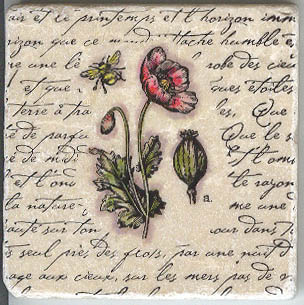 air et le printemps et l'horizon imm
rizon que ce tache humble e
re une li robe des cieu
et que ques étoiles
terre à tra e, Ou
de parfu Que le s
de midi un de
et l'om te rayon
la nature me
auté sur ton our dans t
seul près des flots, par une nuit
age aux cieux, sur les mers pas de v